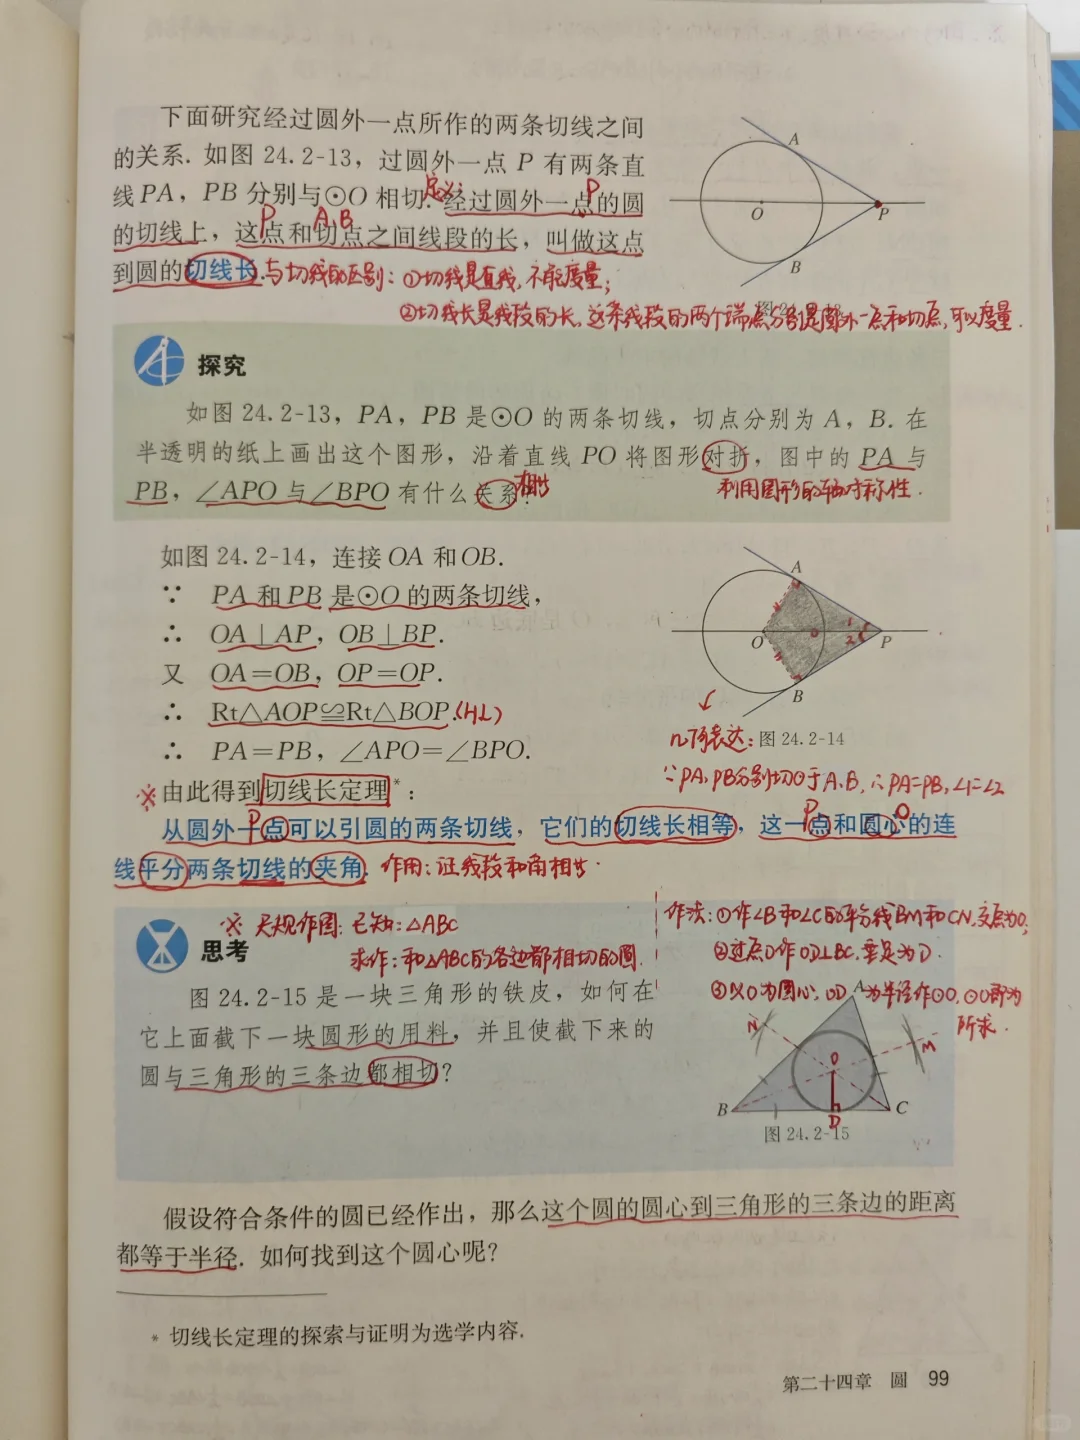 下面研究经过圆外一点所作的两条切线之间
的关系. 如图 24.2-13，过圆外一点 P 有两条直
线 PA，PB 分别与⊙O 相切. 定义: 经过圆外一点的圆
P
的切线上，这点和切点之间线段的长，叫做这点
P A,B
到圆的切线长. 与切线的区别：①切线是直线，不能度量；
②切线长是线段的长，这条线段的两个端点分别是圆外一点和切点，可以度量.
A
O
P
B
探究
如图 24.2-13，PA，PB 是⊙O 的两条切线，切点分别为 A，B. 在
半透明的纸上画出这个图形，沿着直线 PO 将图形对折，图中的 PA 与
PB，∠APO 与∠BPO 有什么关系? 相等
利用图形的轴对称性.
如图 24.2-14，连接 OA 和 OB.
∵ PA 和 PB 是⊙O 的两条切线，
∴ OA⊥AP，OB⊥BP.
又 OA=OB，OP=OP.
∴ Rt△AOP≌Rt△BOP. (HL)
∴ PA=PB，∠APO=∠BPO.
A
O
1
2
P
B
几何表达: 图 24.2-14
∵PA、PB分别切⊙于A、B, ∴PA=PB, ∠1=∠2
※ 由此得到切线长定理*：
P P O
从圆外一点可以引圆的两条切线，它们的切线长相等，这一点和圆心的连
线平分两条切线的夹角. 作用：证线段和角相等.
思考
※ 尺规作图: 已知: △ABC
求作: 和△ABC的各边都相切的圆.
作法: ①作∠B和∠C的平分线BM和CN, 交点为O;
②过点O作OD⊥BC, 垂足为D.
③以O为圆心, OD为半径作⊙O, ⊙O即为
所求.
图 24.2-15 是一块三角形的铁皮，如何在
它上面截下一块圆形的用料，并且使截下来的
圆与三角形的三条边都相切?
A
N
M
O
B
D
C
图 24.2-15
假设符合条件的圆已经作出，那么这个圆的圆心到三角形的三条边的距离
都等于半径. 如何找到这个圆心呢?
* 切线长定理的探索与证明为选学内容.
第二十四章 圆 99